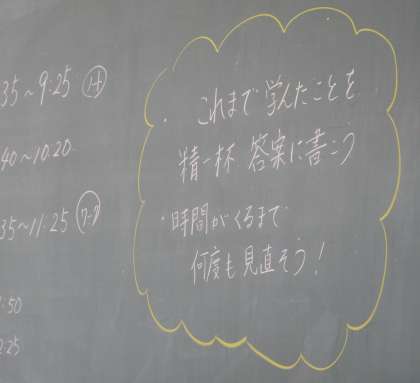 35～9:25
40～10:20
35～11:25
:50
:25
・これまで学んたことを
精一杯 答案に書こう
・時間がくるまで
何度も見直そう！